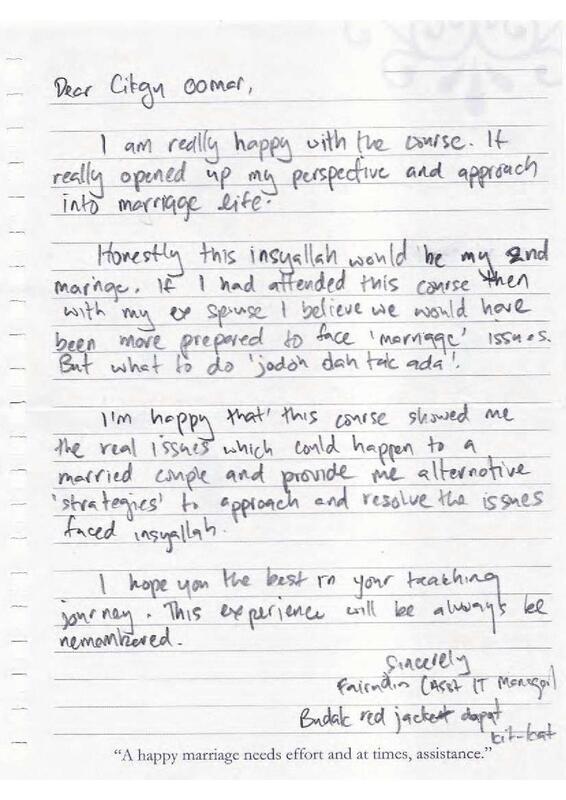 Dear Cikgu oomar,
I am really happy with the course. It
really opened up my perspective and approach
into marriage life.
Honestly this insyallah would be my 2nd
marriage. If I had attended this course then
with my ex spouse I believe we would have
been more prepared to face 'marriage' issues.
But what to do 'jodoh dah tak ada'.
I'm happy that this course showed me
the real issues which could happen to a
married couple and provide me alternative
'strategies' to approach and resolve the issues
faced insyallah.
I hope you the best in your teaching
journey. This experience will be always be
remembered.
Sincerely
(Asst IT Manager)
Budak red jacket dapat
kit-kat
"A happy marriage needs effort and at times, assistance."